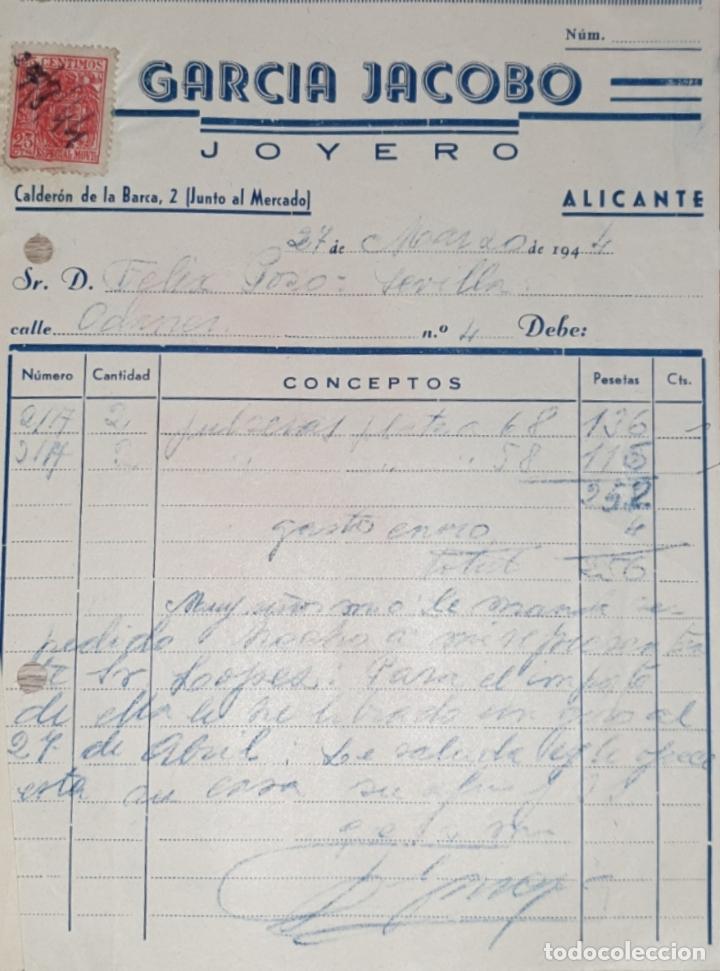 Núm.
CENTIMOS
25
ESPECIAL MOVIL
GARCIA JACOBO
JOYERO
Calderón de la Barca, 2 (Junto al Mercado)
ALICANTE
27 de Marzo de 1944
Sr. D. Felix Pozo = Sevilla
calle n.º 4 Debe:
Número Cantidad CONCEPTOS Pesetas Cts.
2/17 2 plata 68 136
3/17 2 " " 58 116
252
gasto envio 4
total 256
Muy le manda
pedido hecho a mi
te Sr Lopes: Para el importe
de ella le he librado un giro al
27 de Abril: Le saluda y le ofrece
esta su casa su
todocoleccion